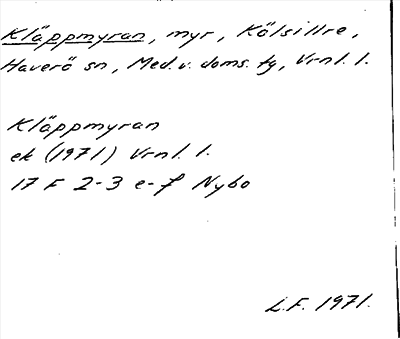 Kläppmyran, myr, Kölsillre,
Haverö sn, Med. v. doms. tg, Vrnl. l.
Kläppmyran
ek (1971) Vrnl. l.
17 F 2-3 e-f Nybo
L.F. 1971.